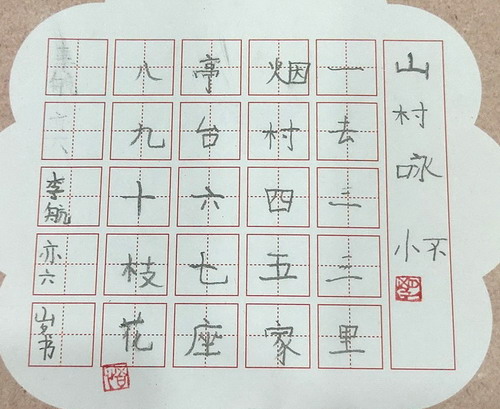 山村咏怀
一去二三里
烟村四五家
亭台六七座
八九十枝花
李航亦六岁书